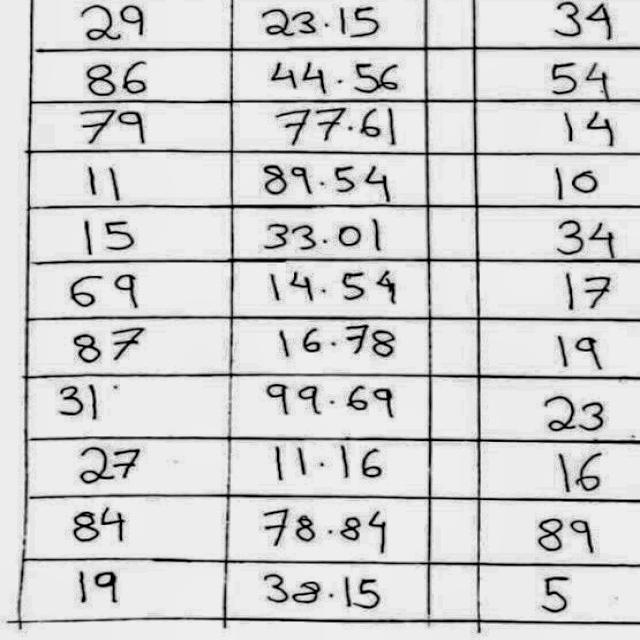 29 23.15 34
86 44.56 54
79 77.61 14
11 89.54 10
15 33.01 34
69 14.54 17
87 16.78 19
31 99.69 23
27 11.16 16
84 78.84 89
19 38.15 5